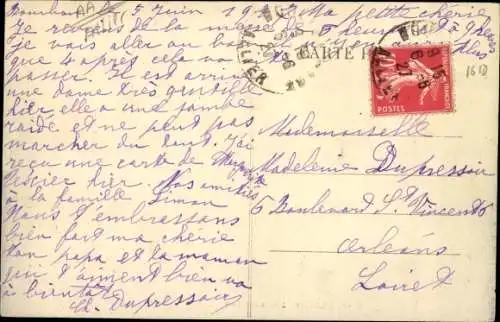 5 Juin 19 Ma petite chérie
Je reviens de la messe de 5 heures
je vais aller au bois
que 4 après cela va
passer. Il est arrivé
une dame très gentille
hier elle a une jambe
raide et ne peut pas
marcher du tout. J'ai
reçu une carte de
hier. Nos amitiés
à la famille Simon
Nous t'embrassons
bien fort ma chérie
ton papa et ta maman
qui t'aiment bien va
à bientôt
Dupressoir
CARTE
ALLIER
POSTES
1612
Mademoiselle
Madeleine Dupressoir
5 Boulevard St Vincent
Orléans
Loiret